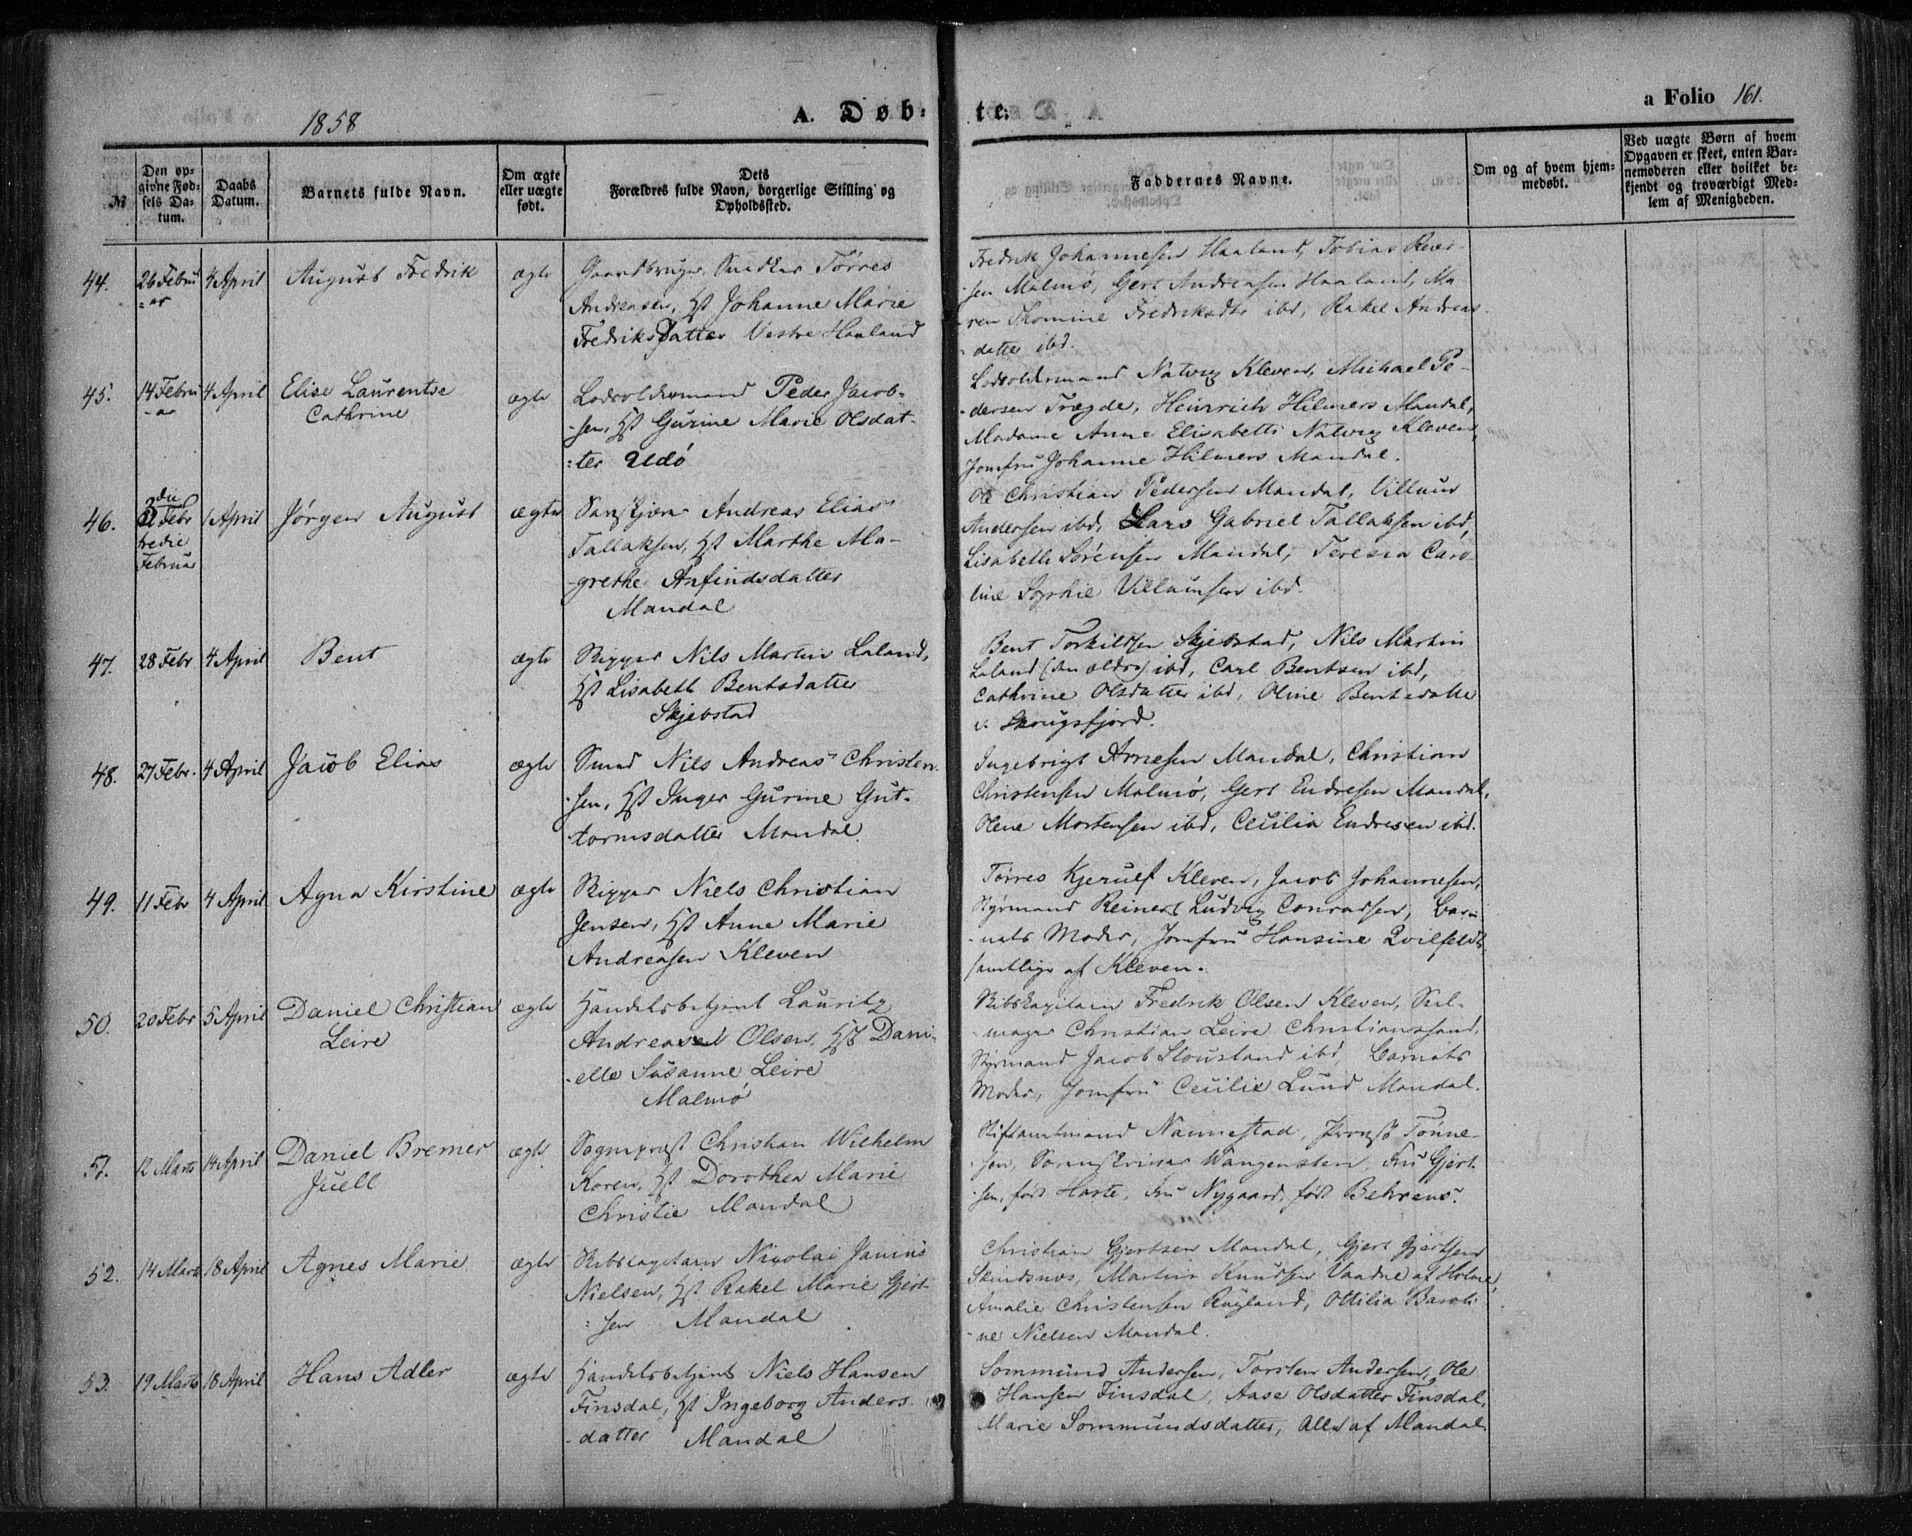 1858
A. Døb-
te.
a Folio 161.
№
Den op-
givne Fød-
sels Da-
tum.
Daabs
Datum.
Barnets fulde Navn.
Om ægte
eller uægte
født.
Dets
Forældres fulde Navn, borgerlige Stilling og
Opholdssted.
Faddernes Navne.
Om og af hvem hjem-
medøbt.
Ved uægte Børn af hvem
Opgaven er skeet, enten Bar-
nemoderen eller hvilket be-
kjendt og troværdigt Med-
lem af Menigheden.
44.
26 Febru
-ar
4 April
August Fredrik
ægte
Gaardbruger, Snedker Tørres
Andreasen, Hst Johanne Marie
Fredriksdatter Vestre Haaland
Fredrik Johannesen Haaland, Tobias
-sen Malmø, Gert Andreasen Haaland, Ma
ren Thomine Fredriksdtr ibd, Rakel Andreas
datter ibd.
45.
14 Febru
-ar
4 April
Elise Laurentse
Cathrine
ægte
Lodsoldermand Peder Jacob-
-sen, Hst Gurine Marie Olsdat-
-ter Udø
Lodsoldermand Natvig Kleven, Michael Pe-
-dersen Trægde, Heinrich Hilmers Mandal,
Madame Anne Elisabeth Natvig Kleven,
Jomfru Johanne Hilmers Mandal.
46.
Febr
tredie
Februar
1 April
Jørgen August
ægte
Andreas Elias
Tallaksen, Hst Marthe Ma-
-grethe Anfindsdatter
Mandal
Ole Christian Pedersen Mandal, Villum
Andersen ibd, Lars Gabriel Tallaksen ibd,
Lisabeth Sørensen Mandal, Teresia Caro
line Sophie Villumsen ibd.
47.
28 Febr
4 April
Bent
ægte
Skipper Nils Martin Laland,
Hst Lisabeth Bentsdatter
Skjebstad
Bent Torkildsen Skjebstad, Nils Martin
Laland (den ældre) ibd, Carl Bentsen ibd,
Cathrine Olsdatter ibd, Oline Bentsdatte
r Skougsfjord.
48.
27 Febr.
4 April
Jacob Elias
ægte
Smed Nils Andreas Christen
-sen, Hst Inger Gurine Gut-
-tormsdatter Mandal.
Ingebrigt Arnesen Mandal, Christian
Christensen Malmø, Gert Endresen Mandal,
Olene Mortensen ibd, Cecilia Endresen ibd.
49.
11 Febr
4 April
Agna Kirstine
ægte
Skipper Niels Christian
Jensen, Hst Anne Marie
Andreasen Kleven
Tørres Kjerulf Kleven, Jacob Johannesen,
Styrmand Reinert Ludvig Conradsen, Bar-
-nets Moder, Jomfru Hansine Qvilfeldt
samtlige af Kleven.
50.
20 Febr
5 April
Daniel Christian
Leire
ægte
Handelsbetjent Lauritz
Andreas Olsen, Hst Dani-
-elle Susanne Leire
Malmø
Skibskapitain Fredrik Olsen Kleven, Seil-
-mager Christian Leire Christianssand,
Styrmand Jacob Stousland ibd, Barnets
Moder, Jomfru Cecilie Lund Mandal.
51.
12 Marts
14 April
Daniel Bremer
Juell
ægte
Sogneprest Christian Wilhelm
Koren, Hst Dorothea Marie
Christie Mandal
Stiftamtmand Nannestad, Provst Tønne-
-sen, Sorenskriver Wangensten, Fru Gjert
-sen, født Harte, Fru Nygaard, født Behrens.
52.
14 Marts
18 April
Agnes Marie
ægte
Skibscaptain Nicolai Janius
Nielsen, Hst Rakel Marie Gjert-
-sen Mandal
Christian Gjertsen Mandal, Gjert Gjertsen
Skindsnes, Martin Knudsen Vaadne af Holme,
Amalie Christensen Rugland, Ottilia Baroli
-ne Nielsen Mandal.
53.
19 Marts
18 April
Hans Adler
ægte
Handelsbetjent Niels Hansen
Finsdal, Hst Ingeborg Anders-
-datter Mandal
Sommund Andersen, Torsten Andersen, Ole
Hansen Finsdal, Aase Olsdatter Finsdal,
Marie Sommundsdatter, Alle af Mandal